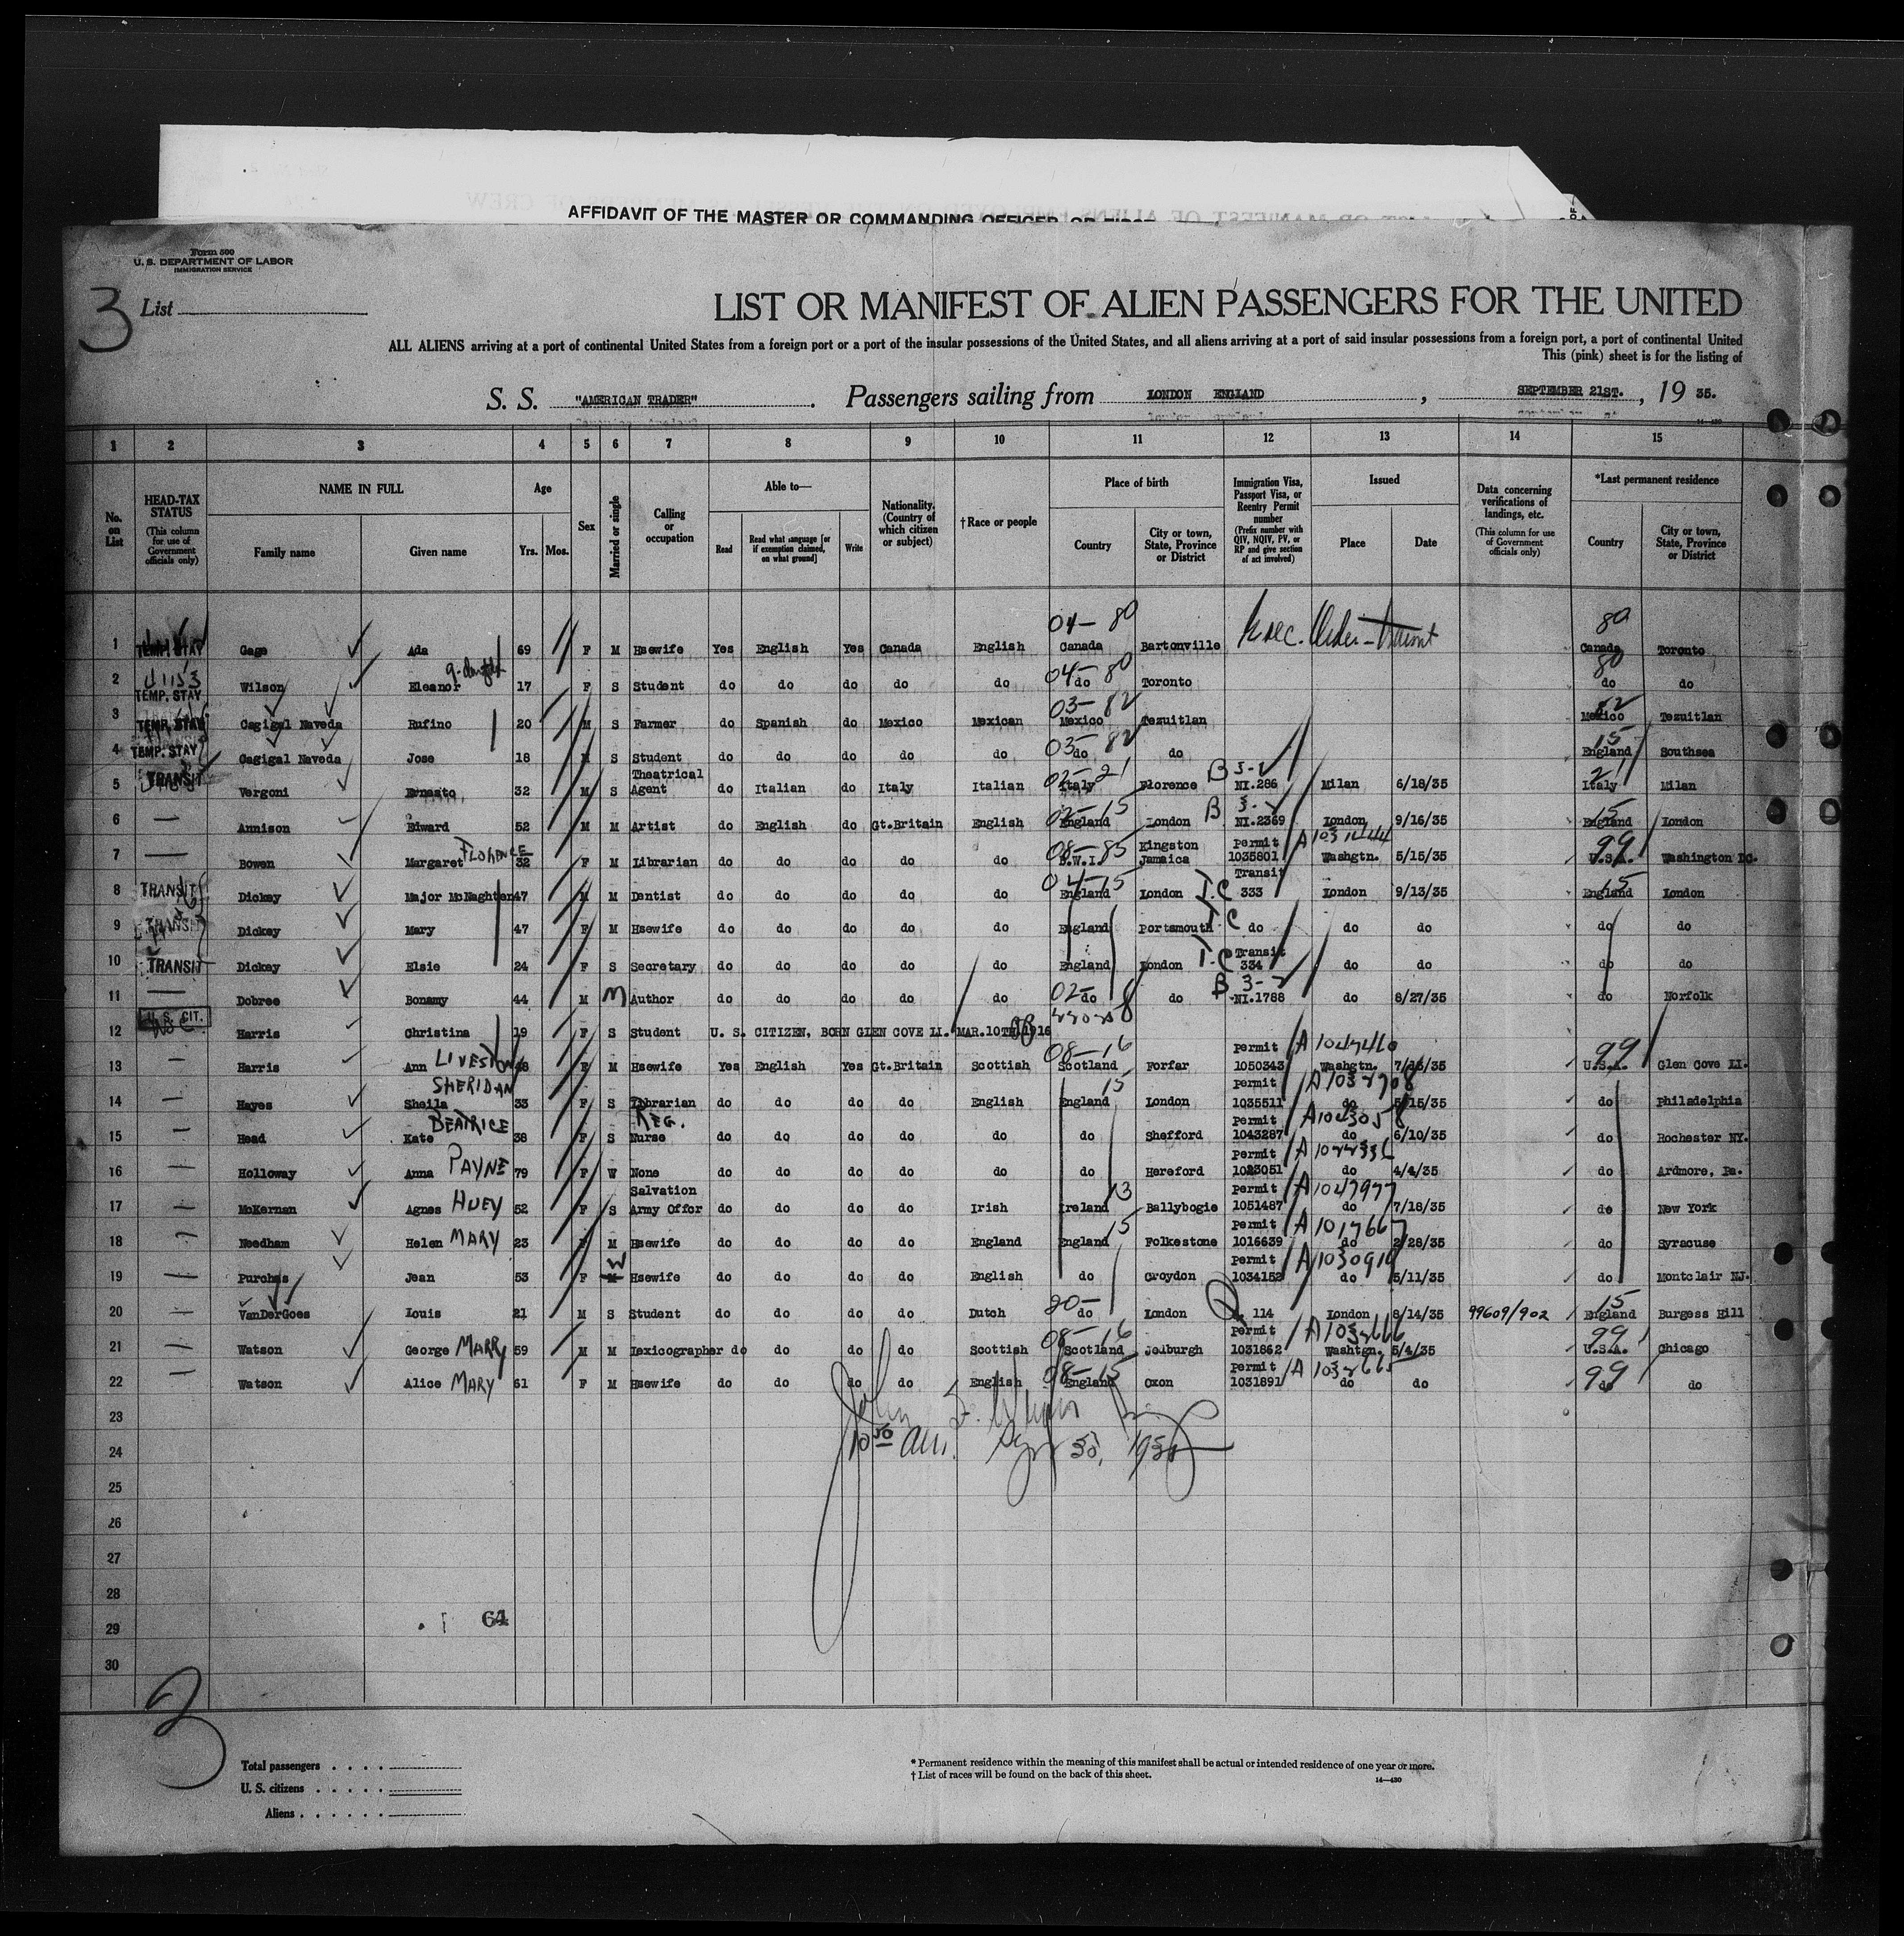 AFFIDAVIT OF THE MASTER OR COMMANDING OFFICER, OR FIRST
Form 500
U. S. DEPARTMENT OF LABOR
IMMIGRATION SERVICE
3 List
LIST OR MANIFEST OF ALIEN PASSENGERS FOR THE UNITED
ALL ALIENS arriving at a port of continental United States from a foreign port or a port of the insular possessions of the United States, and all aliens arriving at a port of said insular possessions from a foreign port, a port of continental United
This (pink) sheet is for the listing of
S. S. "AMERICAN TRADER". Passengers sailing from LONDON ENGLAND, SEPTEMBER 21ST., 19 35.
1 2 3 4 5 6 7 8 9 10 11 12 13 14 15
No. on List
HEAD-TAX STATUS (This column for use of Government officials only)
NAME IN FULL Family name Given name
Age Yrs. Mos.
Sex
Married or single
Calling or occupation
Able to— Read Read what language [or if exemption claimed, on what ground] Write
Nationality. (Country of which citizen or subject)
†Race or people
Place of birth Country City or town, State, Province or District
Immigration Visa, Passport Visa, or Reentry Permit number (Prefix number with QIV, NQIV, PV, or RP and give section of act involved)
Issued Place Date
Data concerning verifications of landings, etc. (This column for use of Government officials only)
*Last permanent residence Country City or town, State, Province or District
1 TEMP. STAY Gage Ada 69 F M Hsewife Yes English Yes Canada English 04- 80 Canada Bartonville Exec. Order - Transit 80 Canada Toronto
2 TEMP. STAY Wilson Eleanor 17 F S Student do do do do do 04- 80 do Toronto 80 do do
3 TEMP. STAY Cagigal Naveda Rufino 20 M S Farmer do Spanish do Mexico Mexican 03- 82 Mexico Tezuitlan Mexico Tezuitlan
4 TEMP. STAY Cagigal Naveda Jose 18 M S Student do do do do do 03- 82 do do 15 England Southsea
5 TRANSIT Vergoni Ernesto 32 M S Theatrical Agent do Italian do Italy Italian 02-21 Italy Florence B 3-2 NI.286 Milan 6/18/35 21 Italy Milan
6 — Annison Edward 52 M M Artist do English do Gt.Britain English 02-15 England London B 3-2 NI.2369 London 9/16/35 15 England London
7 — Bowen Margaret FLORENCE 32 F M Librarian do do do do do 08-85 B.W.I. Kingston Jamaica Permit 1035801 Washgtn. 5/15/35 99 U.S.A. Washington DC.
8 TRANSIT Dickey Major McNaghten 47 M M Dentist do do do do do 04-15 England London T.C Transit 333 London 9/13/35 15 England London
9 TRANSIT Dickey Mary 47 F M Hsewife do do do do do England Portsmouth T.C do do do do do
10 TRANSIT Dickey Elsie 24 F S Secretary do do do do do England London T.C Transit 334 do do do do
11 — Dobree Bonamy 44 M M Author do do do do do 02- do do B 3-2 NI.1788 do 8/27/35 do Norfolk
12 U. S. CIT. Harris Christina 19 F S Student U. S. CITIZEN, BORN GLEN COVE LI. MAR.10TH.1916
13 — Harris Ann F M Hsewife Yes English Yes Gt.Britain Scottish 08-16 Scotland Forfar Permit 1050343 Washgtn. 99 U.S.A. Glen Cove LI.
14 — Hayes Sheila SHERIDAN 33 F S Librarian do do do do English 15 England London Permit 1035511 do 5/15/35 do Philadelphia
15 — Head Kate BEATRICE 38 F S REG. Nurse do do do do do do Shefford Permit 1043287 A1043058 do 6/10/35 do Rochester NY.
16 — Holloway Anna PAYNE 79 F W None do do do do do do Hereford Permit 1023051 do 4/4/35 do Ardmore, Pa.
17 — McKernan Agnes HUEY 52 F S Salvation Army Offcr do do do do Irish 13 Ireland Ballybogie Permit 1051487 A1047977 do 7/18/35 do New York
18 — Needham Helen MARY 23 F M Hsewife do do do do England 15 England Folkestone Permit 1016639 A1017667 do 2/28/35 do Syracuse
19 — Purchas Jean 53 F W Hsewife do do do do English do Croydon Permit 1034152 A1030910 do 5/11/35 do Montclair NJ.
20 — VanDerGoes Louis 21 M S Student do do do do Dutch 20- do London Q. 114 London 8/14/35 99609/902 15 England Burgess Hill
21 — Watson George MARR 59 M M Lexicographer do do do do Scottish 08-16 Scotland Jedburgh Permit 1031862 A1032666 Washtgn. 5/4/35 99 U.S.A. Chicago
22 — Watson Alice MARY 61 F M Hsewife do do do do English 08-15 England Oxon Permit 1031891 A1032665 do do 99 do do
23
24
25
26
27
28
29
30
64
Total passengers
U. S. citizens
Aliens
* Permanent residence within the meaning of this manifest shall be actual or intended residence of one year or more.
† List of races will be found on the back of this sheet.
14—430